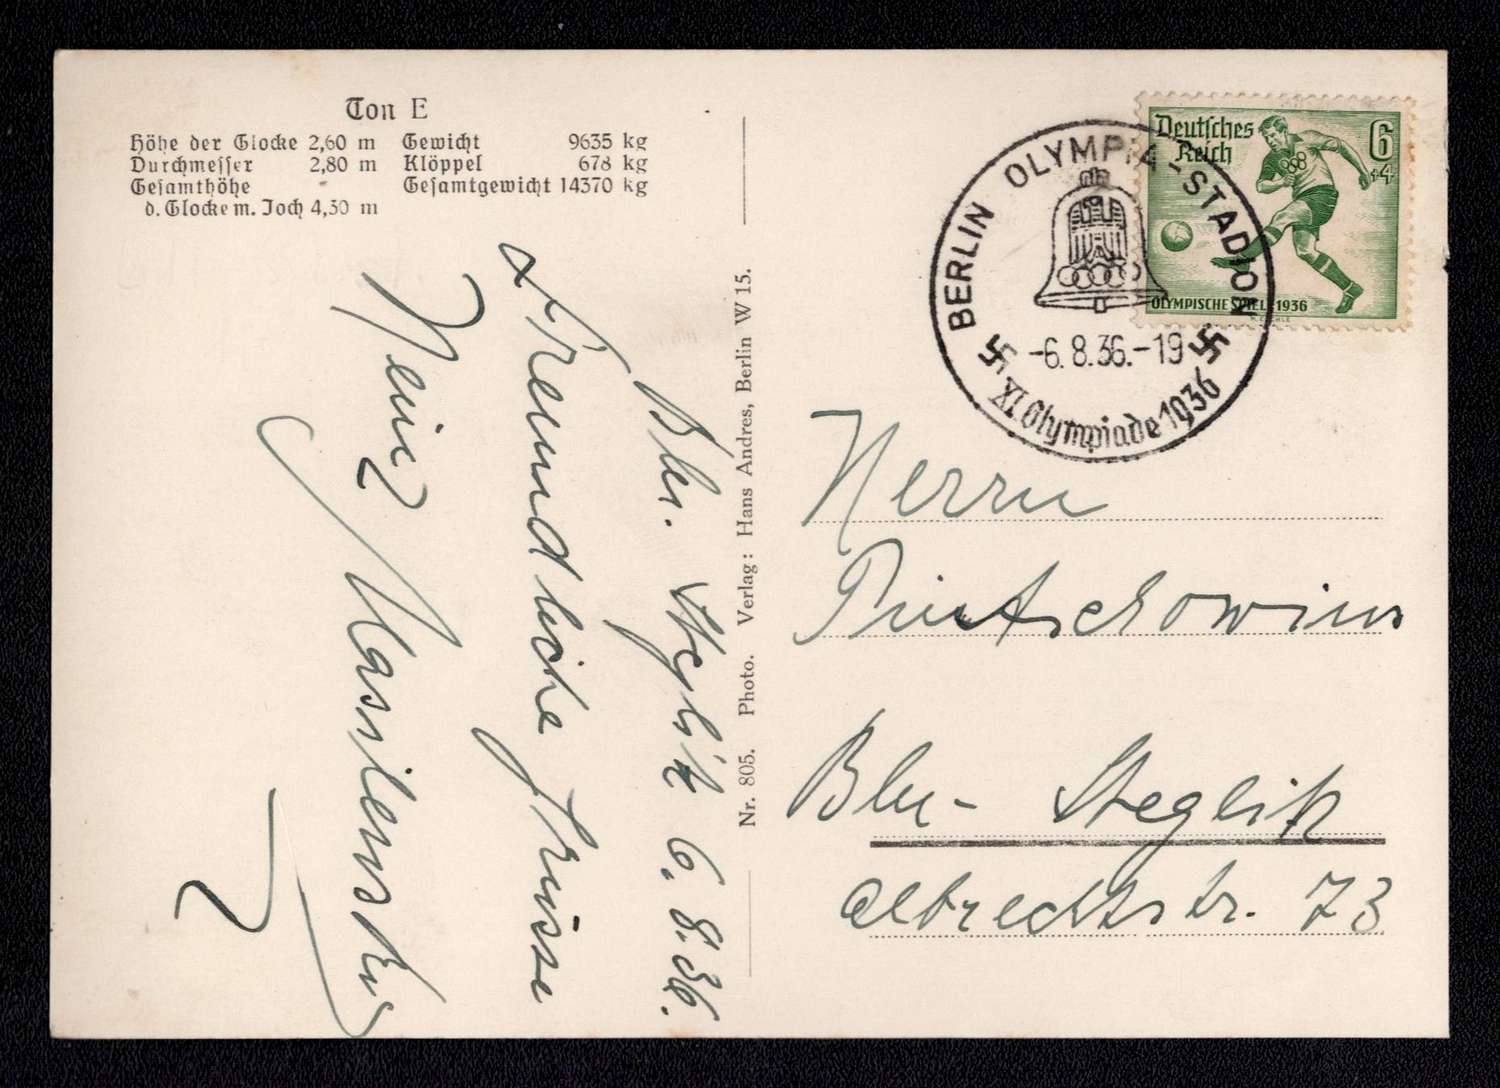 Ton E
Höhe der Glocke 2,60 m
Durchmesser 2,80 m
Gesamthöhe
d. Glocke m. Joch 4,30 m
Gewicht 9635 kg
Klöppel 678 kg
Gesamtgewicht 14370 kg
Bln. Steglitz 6. 8. 36.
Freundliche Grüsse
Heinz
Nr. 805. Photo. Verlag: Hans Andres, Berlin W 15.
Deutsches
Reich
6
+4
OLYMPISCHE SPIELE 1936
BERLIN OLYMPIA-STADION
-6.8.36.-19
XI. Olympiade 1936
Herrn
Bln - Steglitz
Albrechtstr. 73